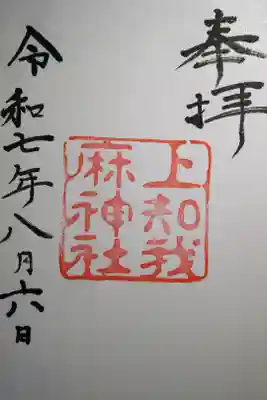 奉拝
上知我
麻神社
令和七年八月六日